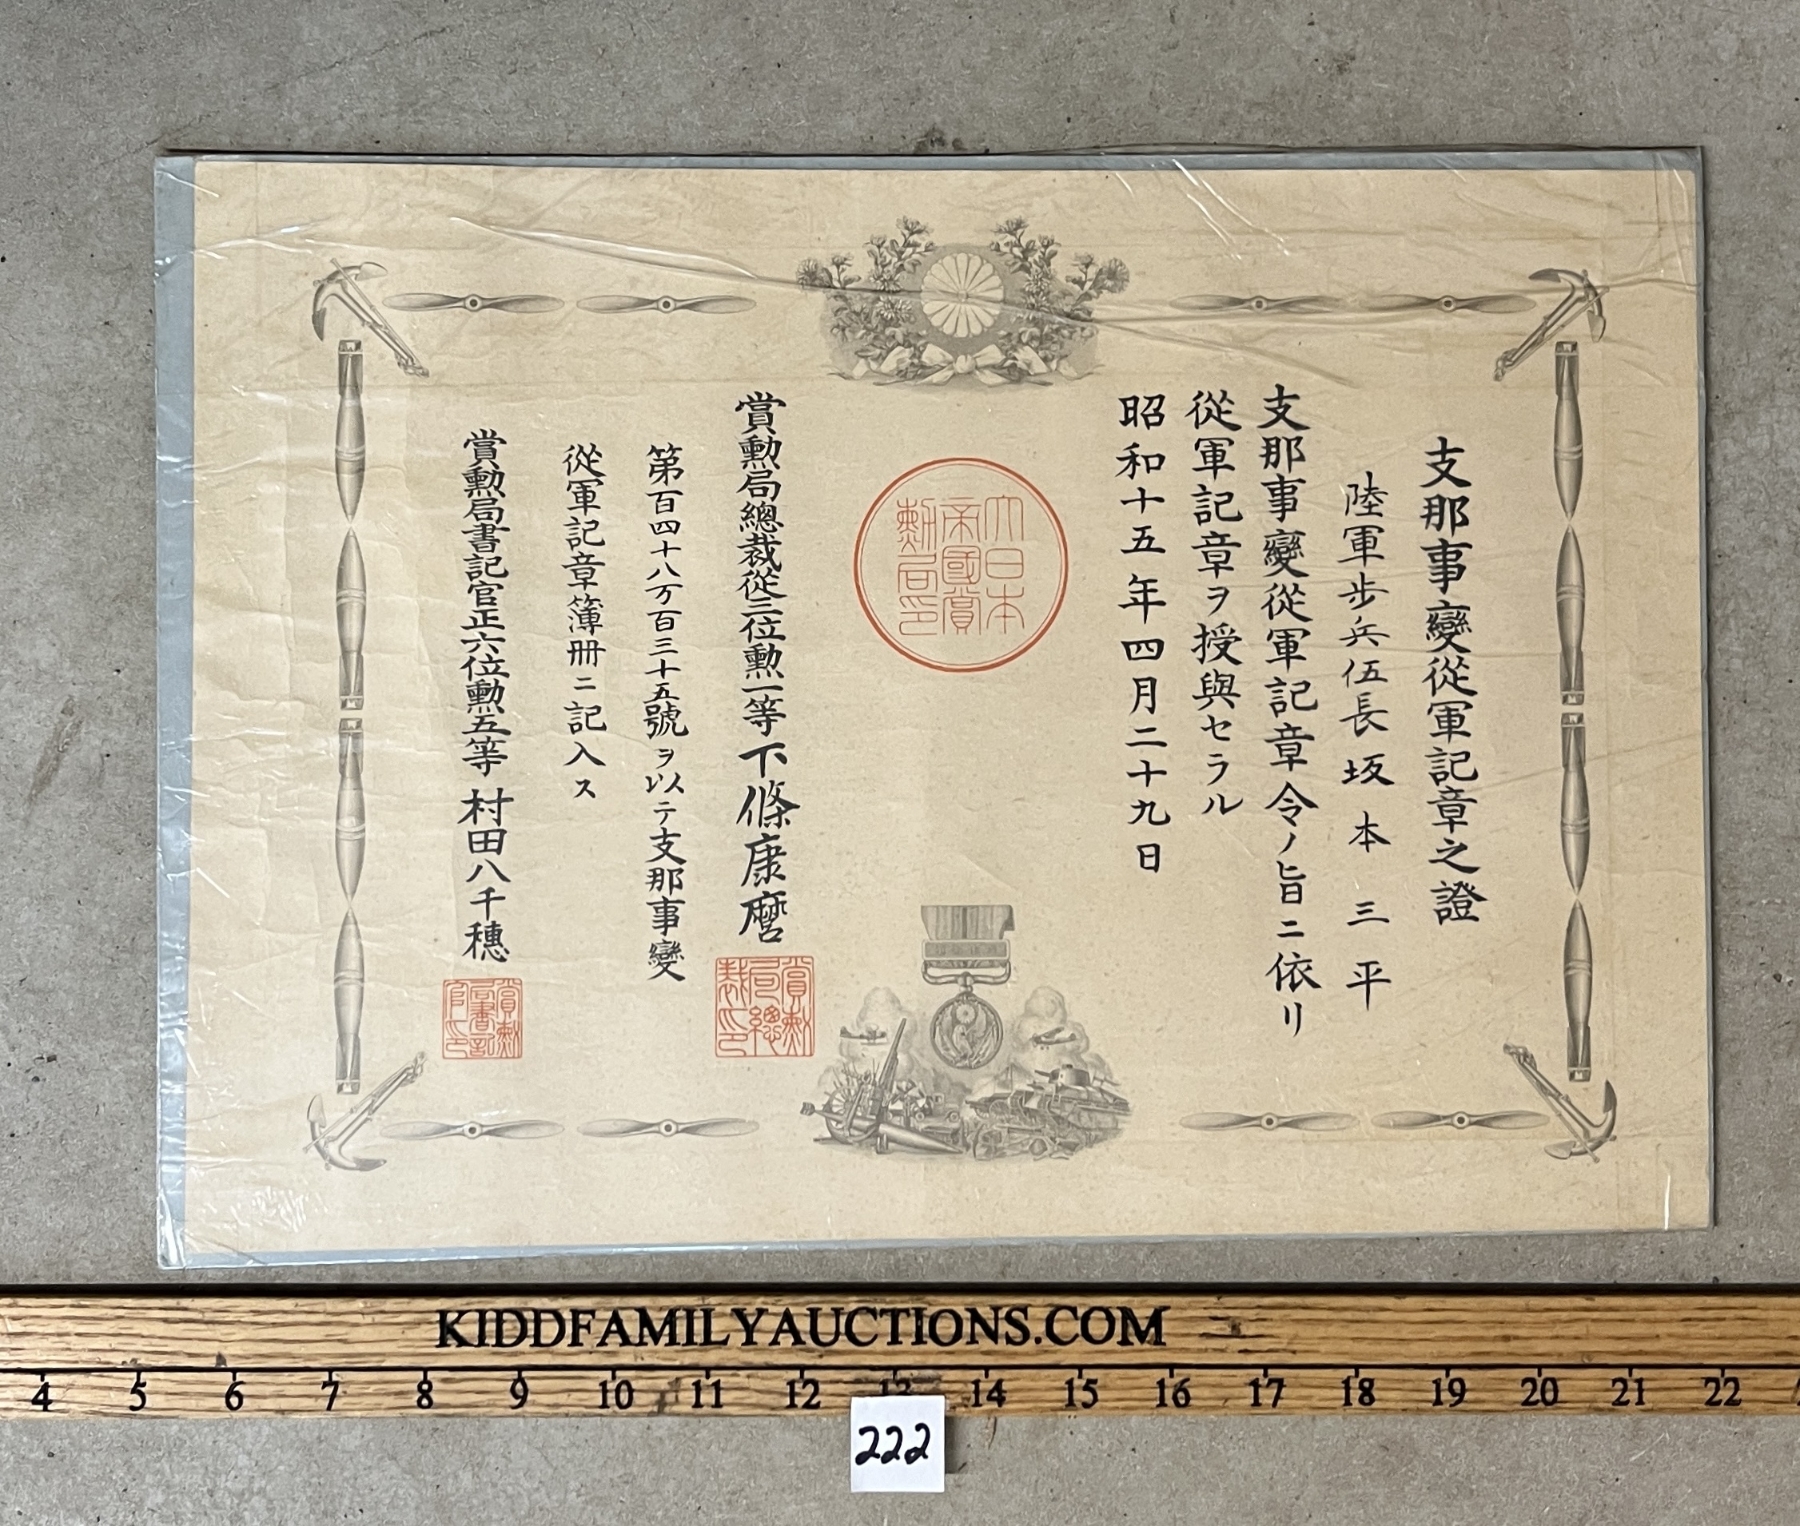 支那事變從軍記章之證
陸軍步兵伍長坂本三平
支那事變從軍記章令ノ旨ニ依リ
從軍記章ヲ授與セラル
昭和十五年四月二十九日
大日本
帝國賞
勳局印
賞勳局總裁從三位勳一等下條康麿
賞勳
局總
裁印
第百四十八万百三十五號ヲ以テ支那事變
從軍記章簿冊ニ記入ス
賞勳局書記官正六位勳五等村田八千穗
賞勳
局書記
官印
KIDDFAMILYAUCTIONS.COM
4 5 6 7 8 9 10 11 12 13 14 15 16 17 18 19 20 21 22
222